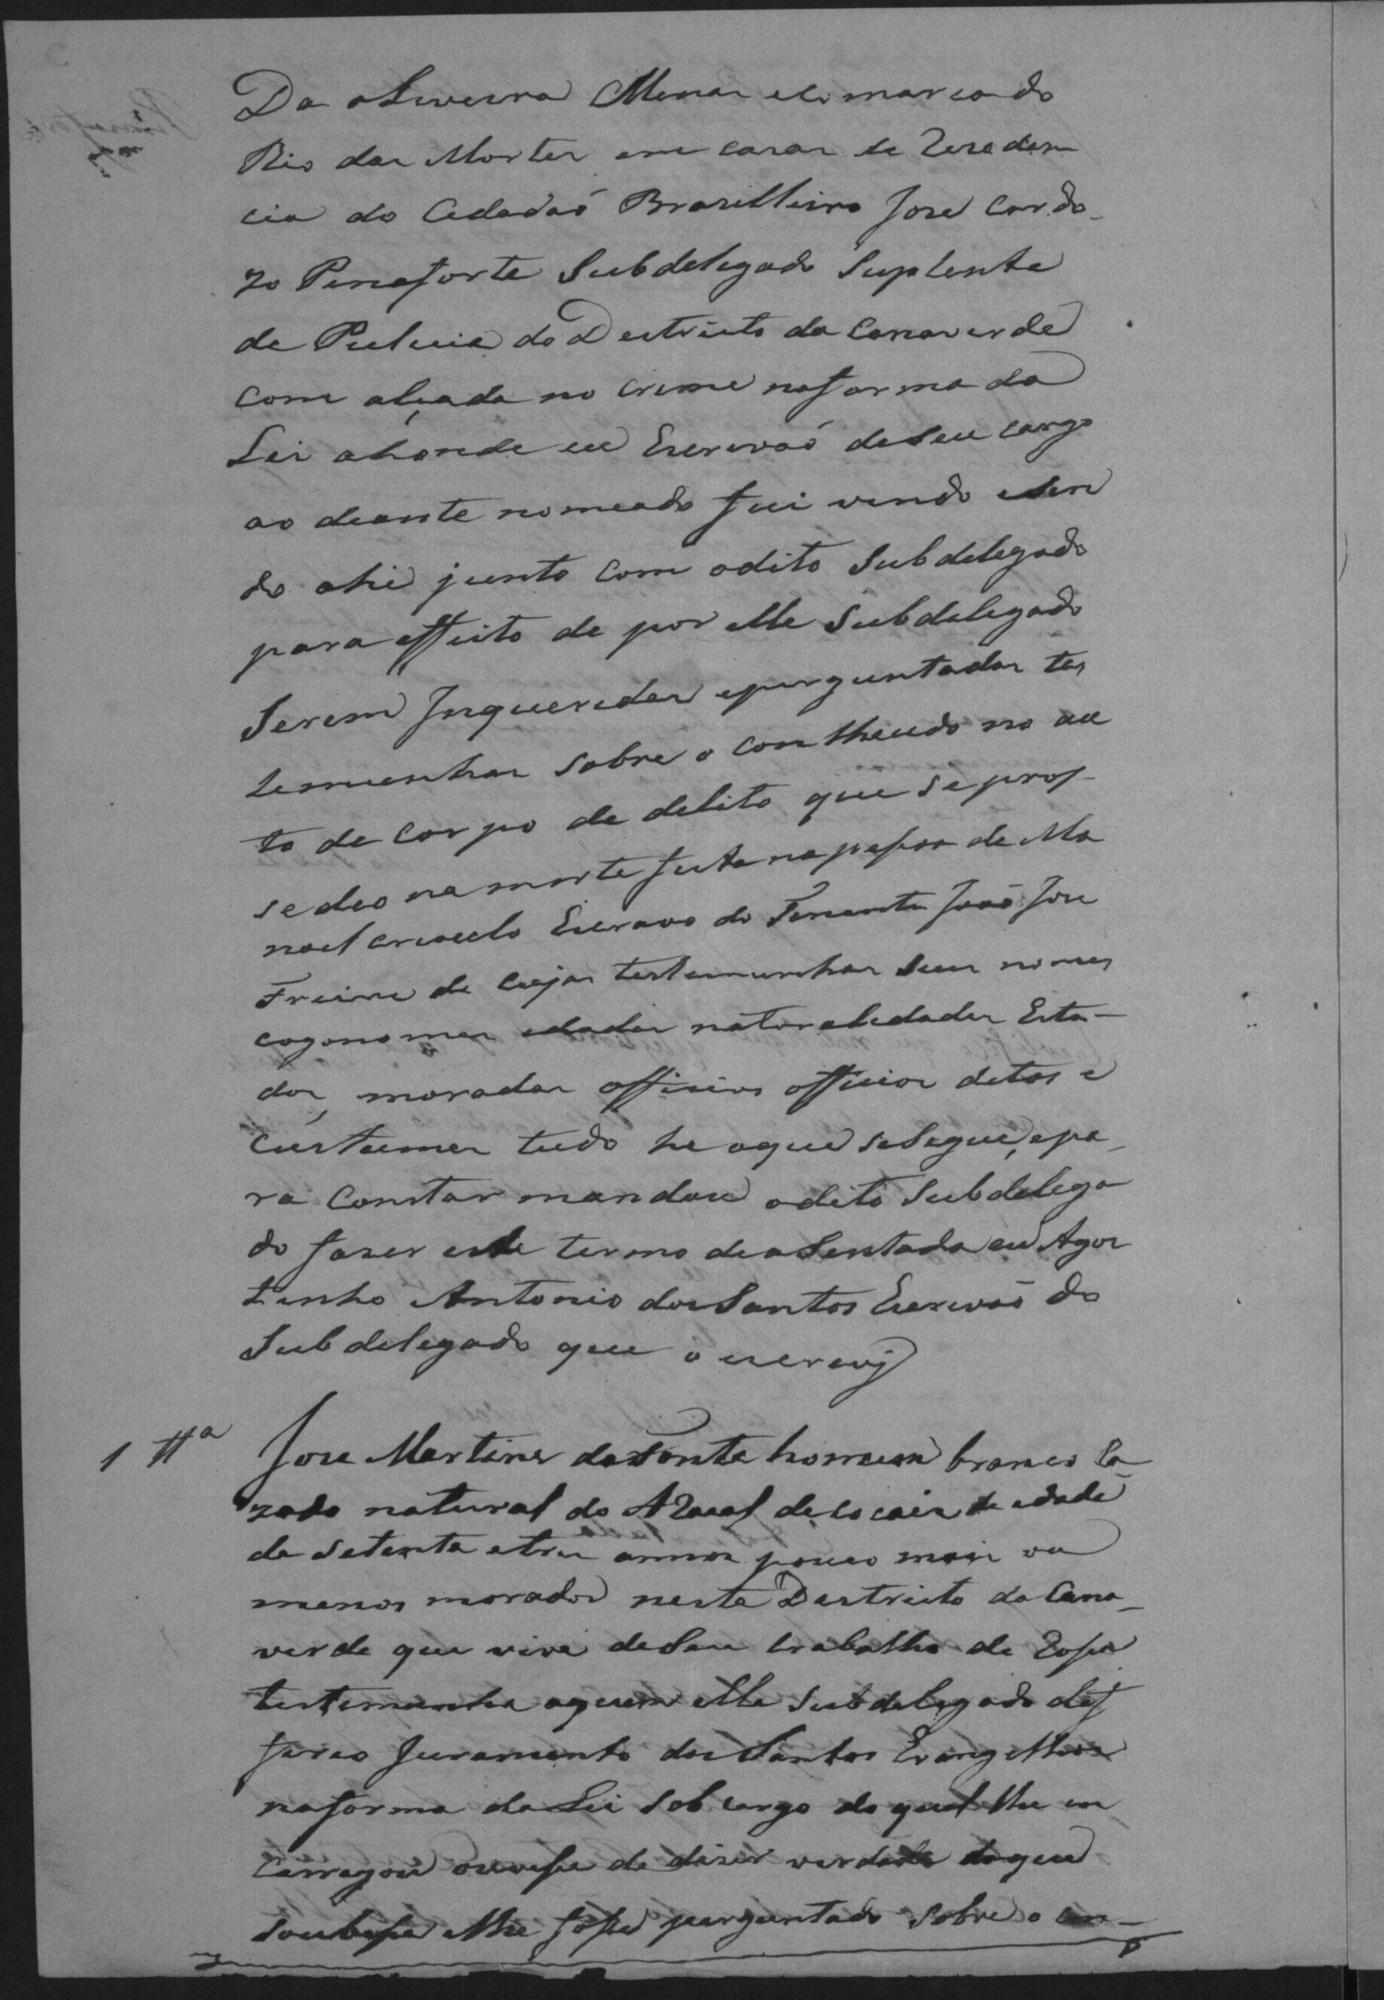 Da oliveira Minas e Comarca do
Rio das Mortes em casas de Rezeden
cia do Cidadaõ Brasilleiro Jose Cardo
zo Penaforte Subdelegado Suplente
de Pulicia do Destricto da Canaverde
com alçada no crime na forma da
Lei ahonde eu Escrivaõ de seu cargo
ao deante nomeado fui vendo e sen
do ahi junto com odito Subdelegado
para effeito de por elle Subdelegado
Serem Inqueridas eperguntadas tes
temunhas sobre o contheudo no au
to de corpo de delito que se pros
sedeo na morte feita na pessoa de Ma
noel crioulo Escravo do Tenente João Jose
Freire de cujas testemunhas seus nomes
cogonomes edades naturalidades Esta
dos, moradas officios officios detos e
custumes tudo he oque seSegue, epa
ra constar mandou odito Subdelega
do faser este termo de asentada eu Agos
tinho Antonio dos Santos Escrivaõ do
Subdelegado que o escrevj
1 ttª Jose Martins da Fonte homem branco Ca
zado natural do ARaial de Cocais de edade
de setenta e tres annos pouco mais ou
menos morador neste Destricto da Cana
verde que vive de Seu trabalho de Rossa
testemunha aquem elle Subdelegado def
fereo Juramento dos Santos Evangelhos
na forma da Lei sob cargo do qual lhe en
carregou ouvesse de diser verdade do que
soubesse elhe fosse perguntado sobre o con